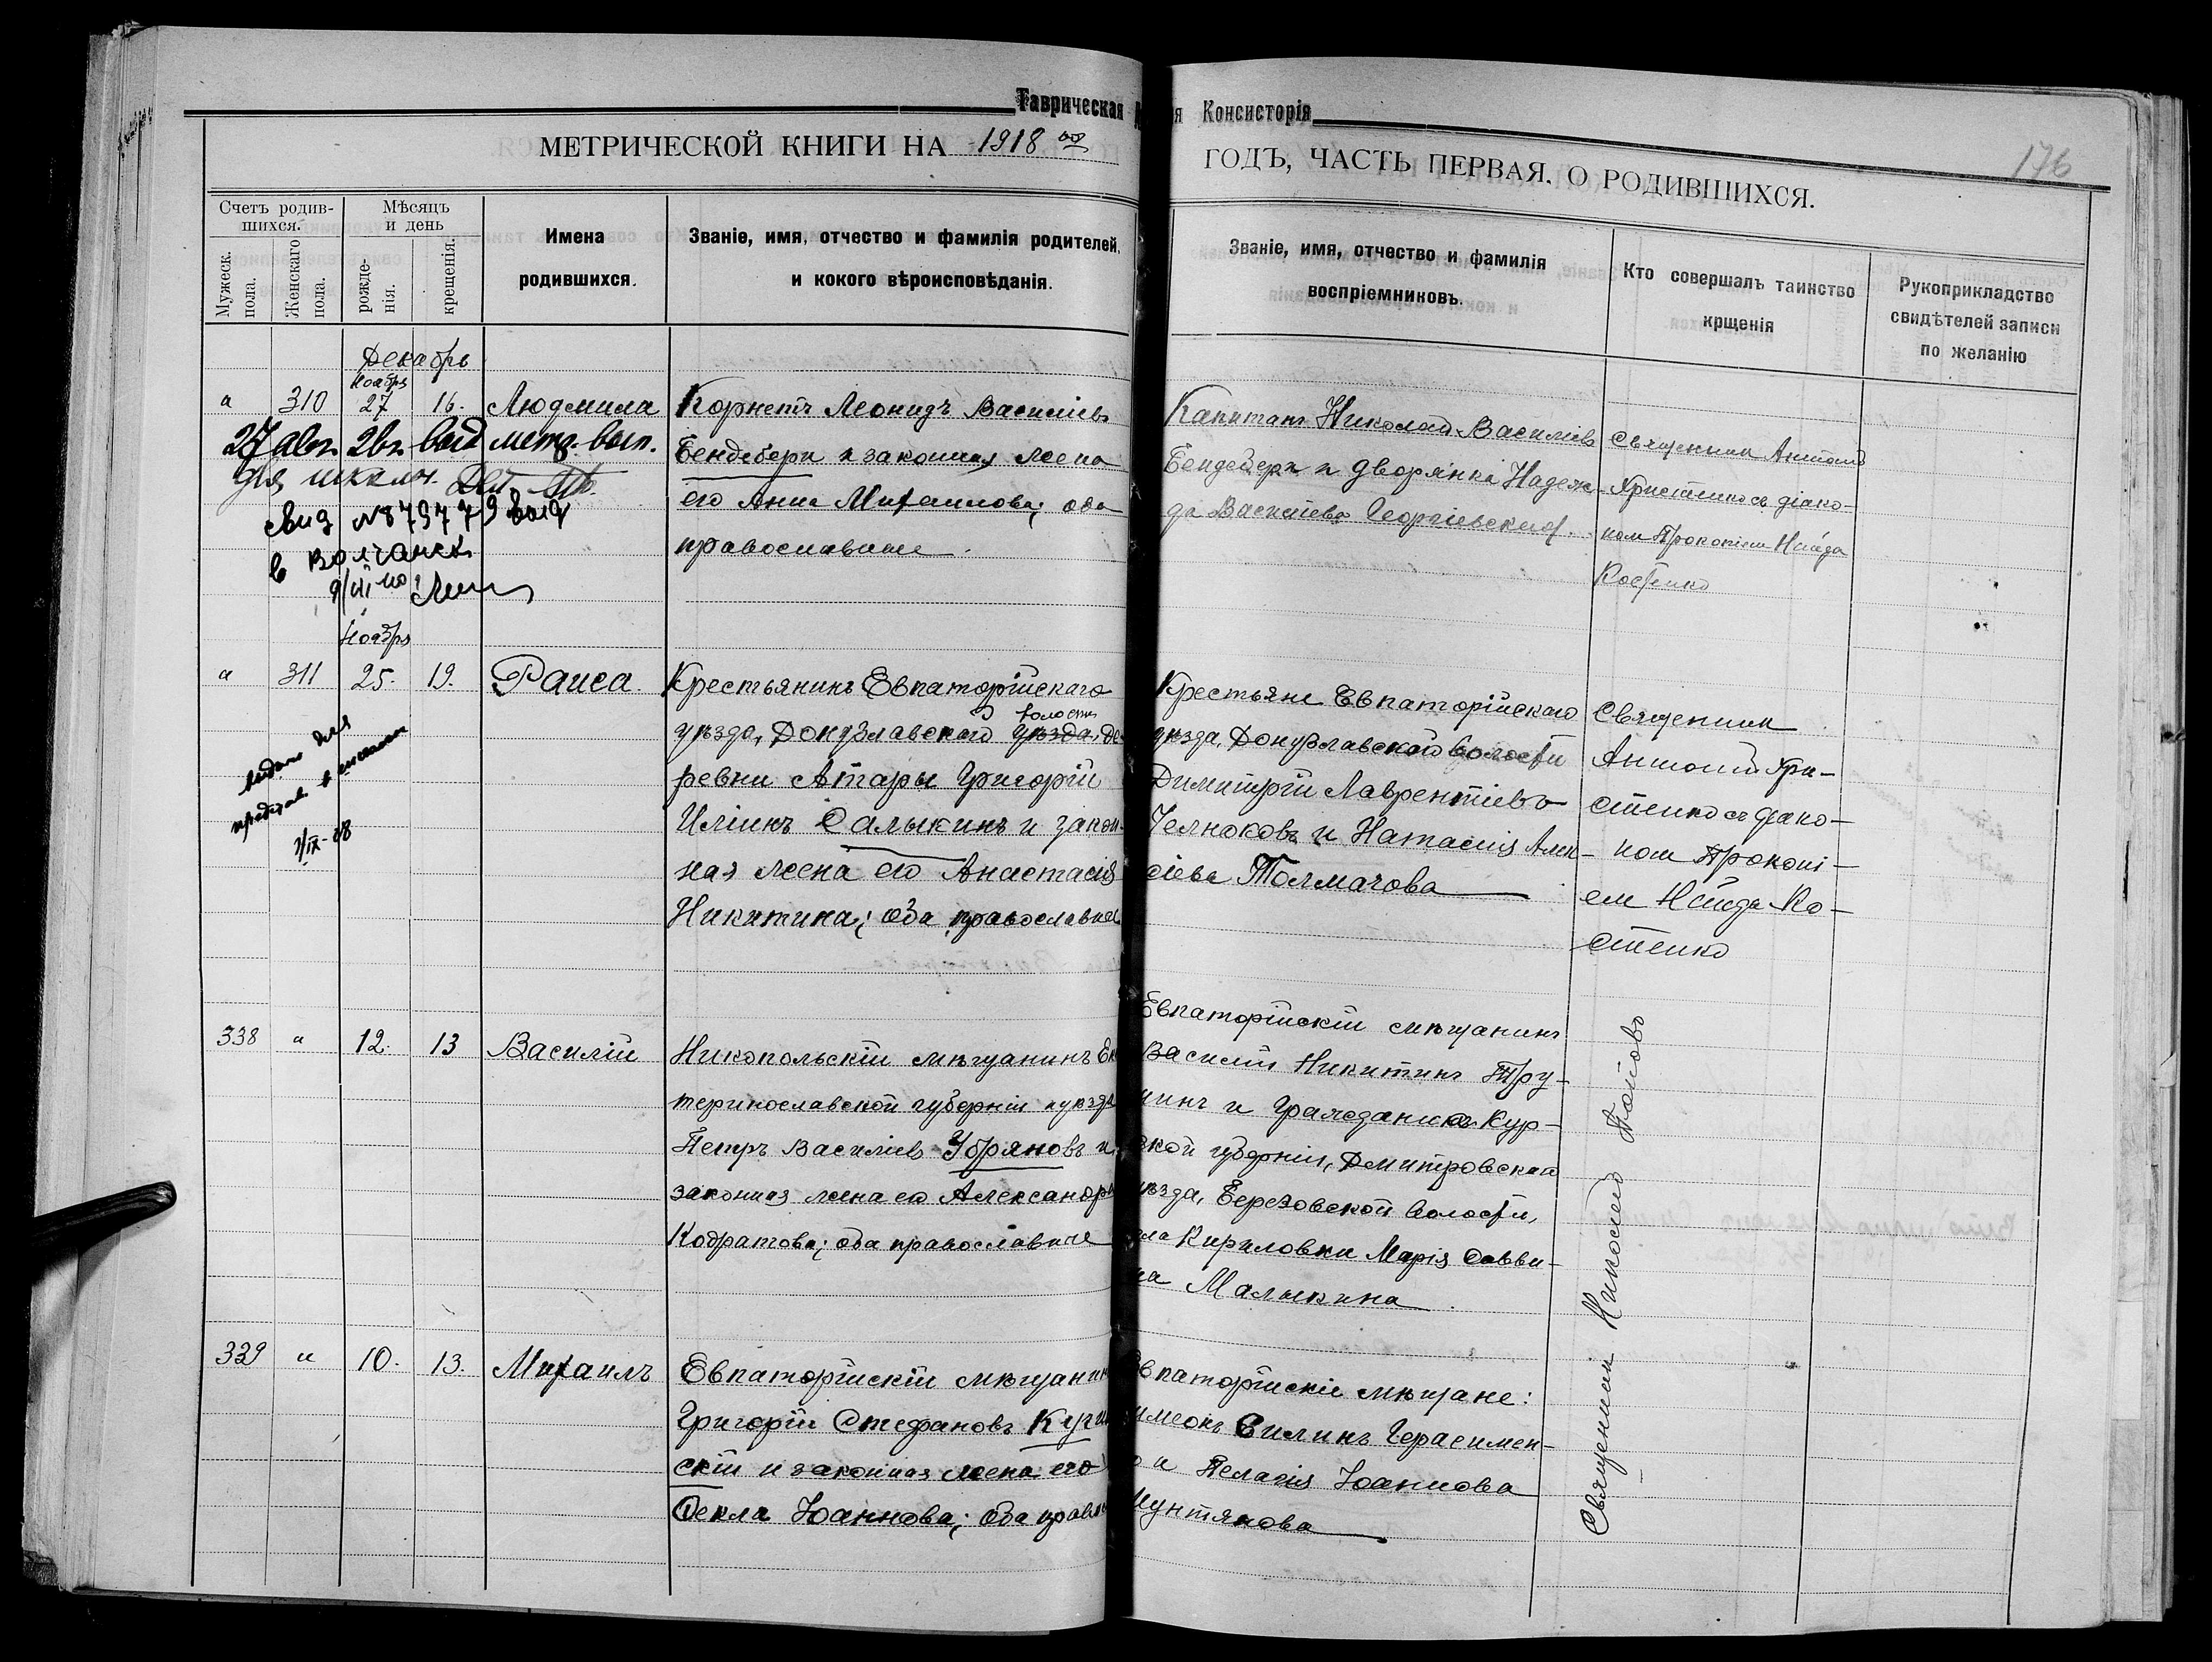 Таврическая
я Консисторія
МЕТРИЧЕСКОЙ КНИГИ НА 1918 ый
ГОДЪ, ЧАСТЬ ПЕРВАЯ. О РОДИВШИХСЯ.
176
Счетъ родив-
шихся.
Мужеск.
пола.
Женскаго
пола.
Мѣсяцъ
и день
рожде-
нія.
крещенія.
Имена
родившихся.
Званіе, имя, отчество и фамилія родителей,
и кокого вѣроисповѣданія.
Званіе, имя, отчество и фамилія
воспріемниковъ.
Кто совершалъ таинство
крщенія
Рукоприкладство
свидѣтелей записи
по желанію
Декабрь
Ноября
310 27 16. Людмила
Корнетъ Леонидъ Василіевъ
Бендебери и законная жена
его Анна Михаилова; оба
православные.
Капитанъ Николай Василіевъ
Бендебери и дворянка Надеж-
да Василіева Георгіевская.
Священникъ Антоній
Христенко съ діако-
номъ Прокопіем Найда
Костенко
27 авг. 26 г. выд. метр. вып.
для школы.
свид № 879779 выд
в Волчанск
Ноября
311 25. 19. Раиса.
Крестьянинъ Евпаторійскаго
уѣзда, Донузлавской уѣзда волости, де-
ревни Атары Григорій
Иліинъ Салыкинъ и закон-
ная жена его Анастасія
Никитина; оба православные
Крестьяне Евпаторійскаго
уѣзда, Донузлавской волости
Димитрій Лаврентіевъ
Челноковъ и Наталія Алек-
сіева Толмачова
Священник
Антоній Хри-
стенко съ діако-
ном Прокопі-
ем Найда-Ко-
стенко
выдано для
в школы
1/IX-28
338 12. 13 Василій
Никопольскій мѣщанинъ Ека
теринославской губерніи и уѣзда
Петръ Василіевъ Убряновъ и
законная жена его Александра
Кодратова; оба православные
Евпаторійскій мѣщанинъ
Василій Никитинъ Тру-
нинъ и гражданка Кур-
ской губерніи, Дмитровскаго
уѣзда, Березовской волости,
села Кириловки Марія Савви-
на Малыкина.
339 10. 13. Михаилъ
Евпаторійскій мѣщанин
Григорій Стефановъ Кучин
скій и законная жена его
Ѳекла Іоаннова; оба правос
Евпаторійскіе мѣщане:
Симеонъ Силинъ Герасимен-
ко и Пелагія Іоаннова
Мунтянова
Священникъ Николай Поповъ